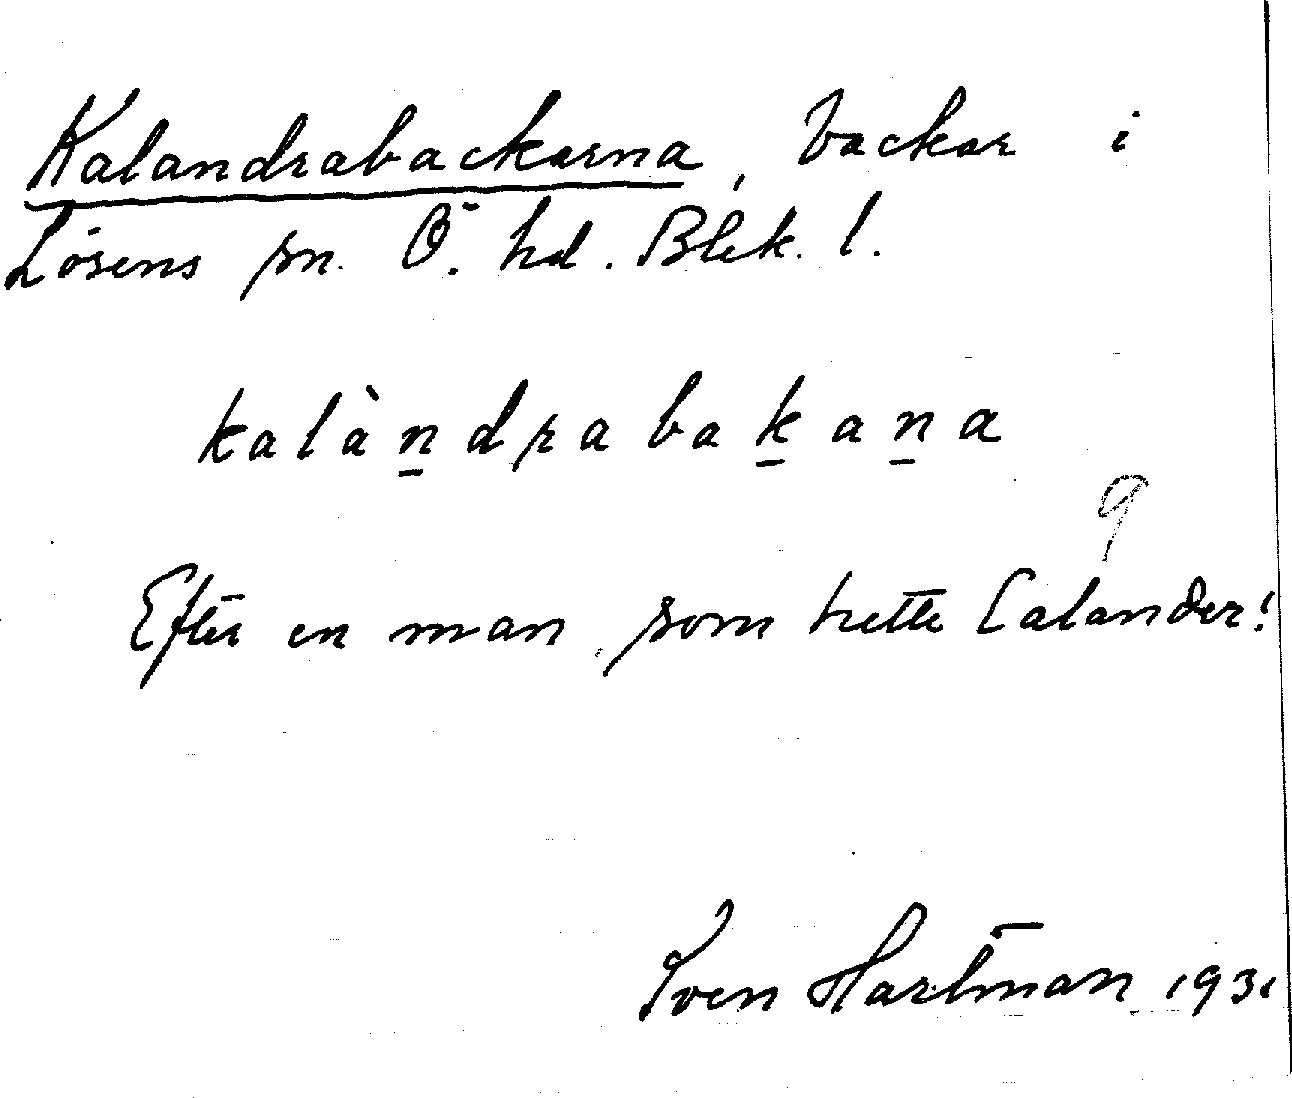 Kalandrabackarna, backar i
Lösens sn. Ö. hd. Blek. l.
kalàn̠drabak̠an̠a
9
Efter en man som hette Calander!
Sven Hartman 1931